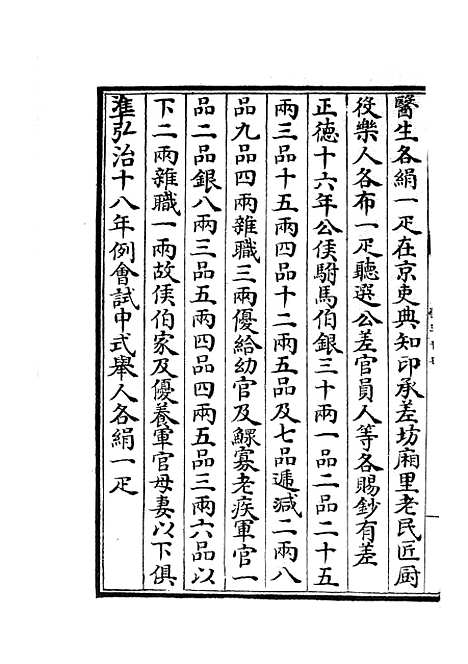 醫生各絹一疋在京吏典知印承差坊廂里老民匠厨
役樂人各布一疋聽選公差官員人等各賜鈔有差
正德十六年公侯駙馬伯銀三十兩一品二品二十五
兩三品十五兩四品十二兩五品及七品遞減二兩八
品九品四兩雜職三兩優給幼官及鰥寡老疾軍官一
品二品銀八兩三品五兩四品四兩五品三兩六品以
下二兩雜職一兩故侯伯家及優養軍官母妻以下俱
準弘治十八年例會試中式舉人各絹一疋